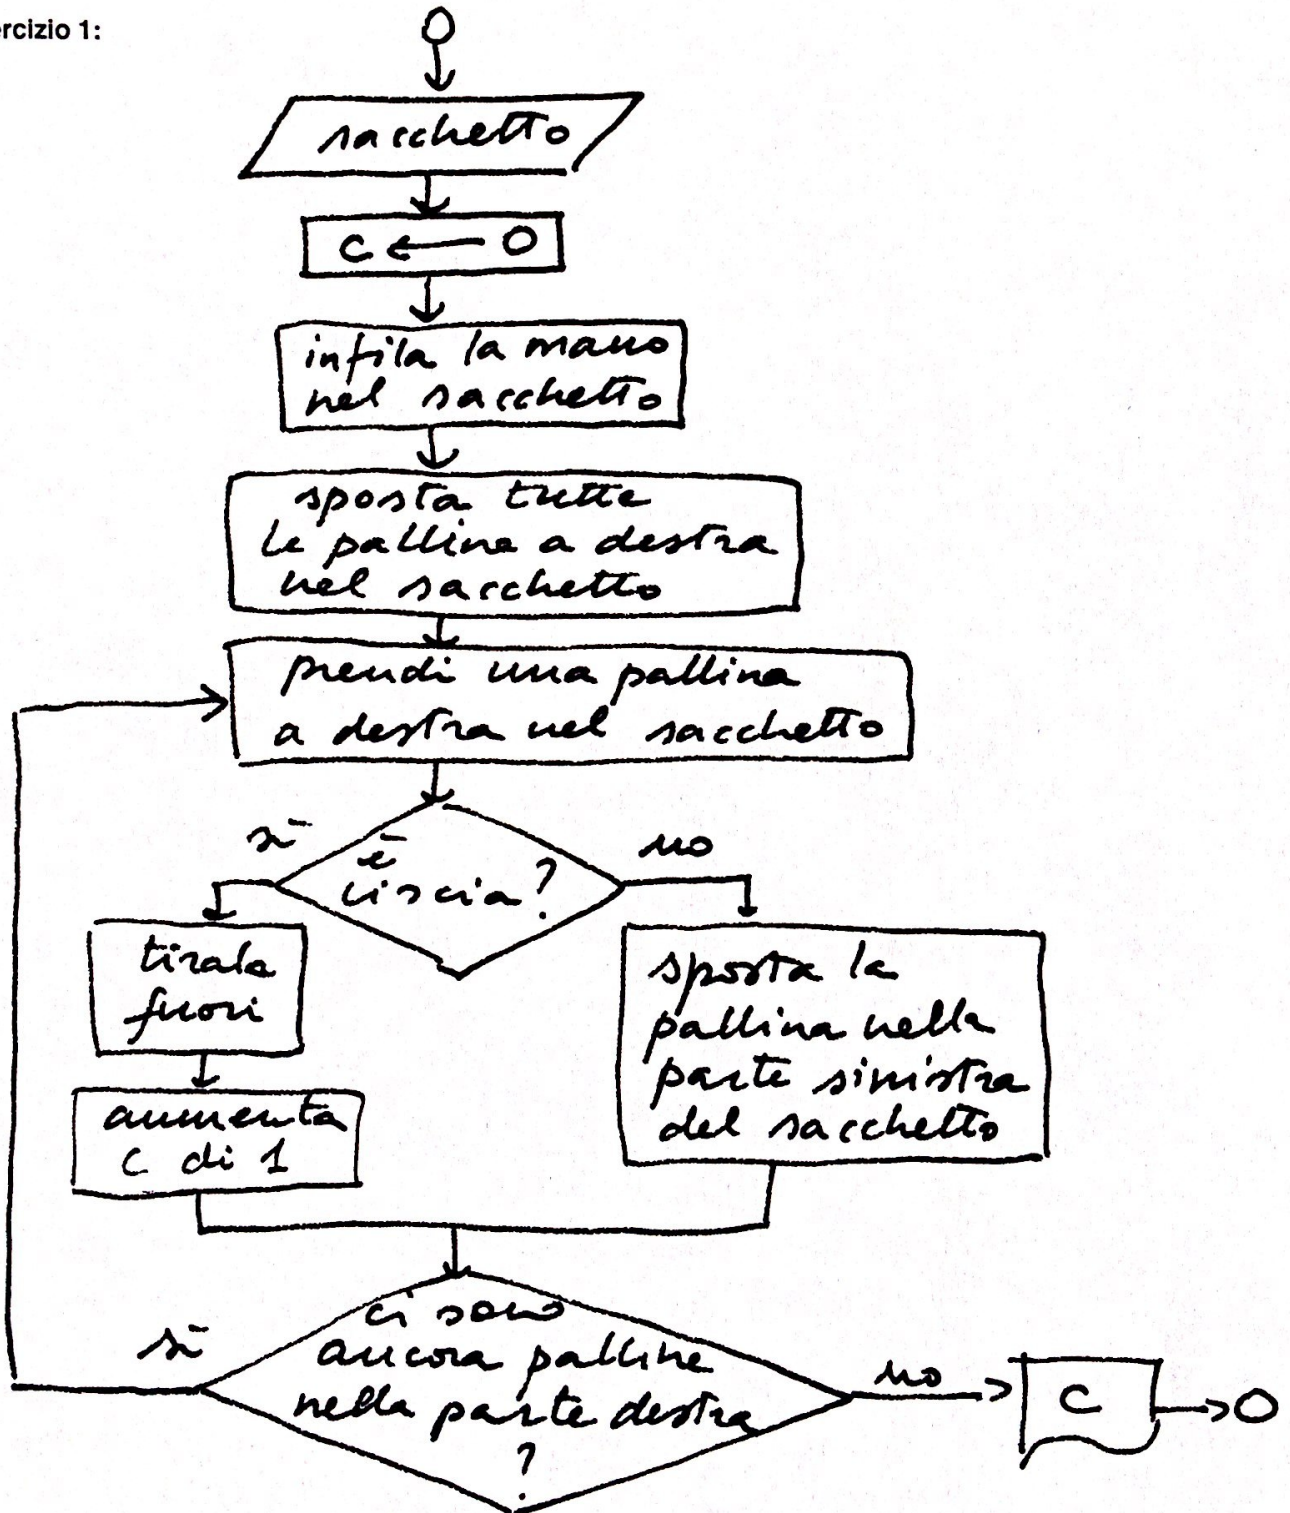 ercizio 1:
sacchetto
C ← 0
infila la mano
nel sacchetto
sposta tutte
le palline a destra
nel sacchetto
prendi una pallina
a destra nel sacchetto
è
liscia?
sì
no
tirala
fuori
aumenta
C di 1
sposta la
pallina nella
parte sinistra
del sacchetto
ci sono
ancora palline
nella parte destra
?
sì
no
C